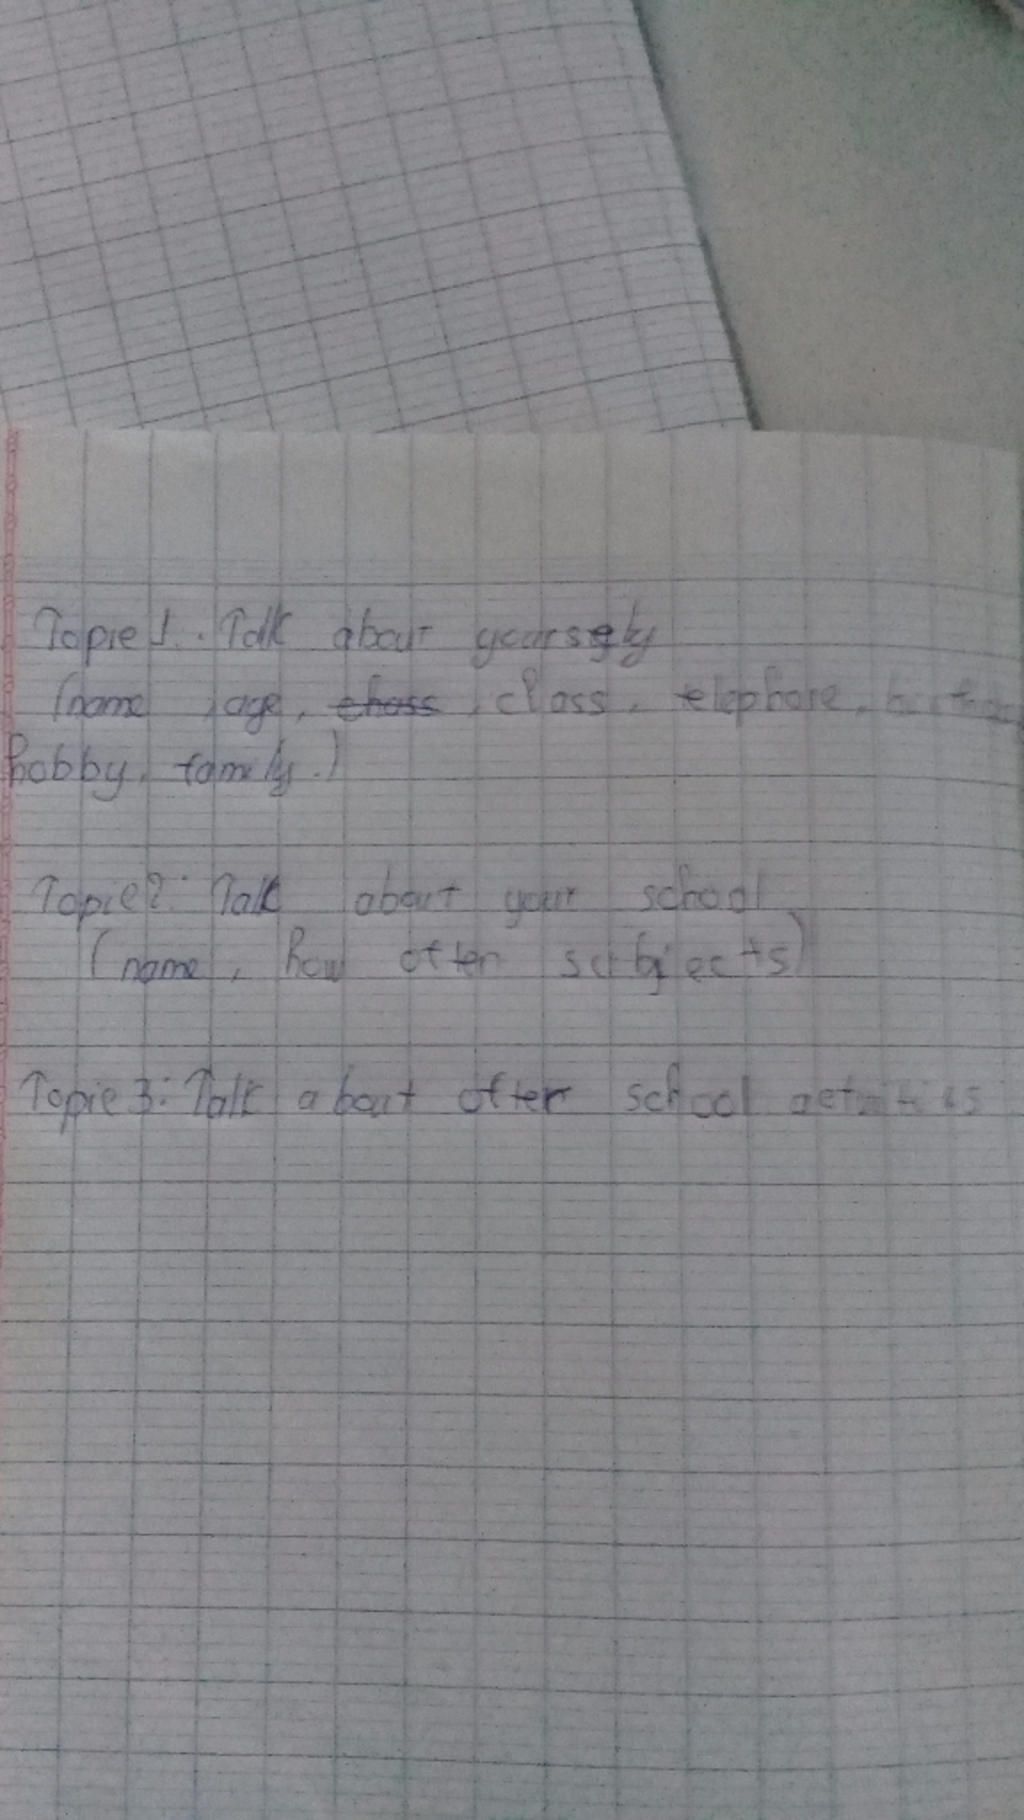 Topie 1. Talk about yoursely
(name, age, class, telephone,
hobby, family.)
Topie 2: Talk about your school
(name, how often subjects)
Topie 3: Talk about ofter school